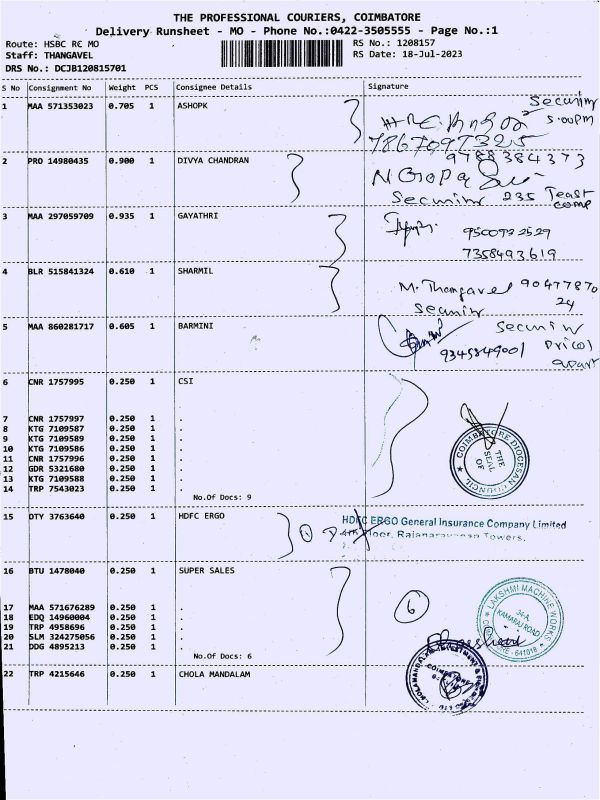 THE PROFESSIONAL COURIERS, COIMBATORE
Delivery Runsheet - MO - Phone No.:0422-3505555 - Page No.:1
Route: HSBC RC MO RS No.: 1208157
Staff: THANGAVEL RS Date: 18-Jul-2023
DRS No.: DCJB120815701
S No Consignment No Weight PCS Consignee Details Signature
1 MAA 571353023 0.705 1 ASHOPK
Security
5.00pm
7867097325
2 PRO 14980435 0.900 1 DIVYA CHANDRAN
9788384373
N Gopa
Security 235
3 MAA 297059709 0.935 1 GAYATHRI
9500922529
7358493619
4 BLR 515841324 0.610 1 SHARMIL
M. Thangavel 90477870
24
Security
5 MAA 860281717 0.605 1 BARMINI
Security
9345849001
apart
6 CNR 1757995 0.250 1 CSI
7 CNR 1757997 0.250 1 .
8 KTG 7109587 0.250 1 .
9 KTG 7109589 0.250 1 .
10 KTG 7109586 0.250 1 .
11 CNR 1757996 0.250 1 .
12 GDR 5321680 0.250 1 .
13 KTG 7109588 0.250 1 .
14 TRP 7543023 0.250 1 .
No.Of Docs: 9
COIMBATORE DIOCESAN COUNCIL
THE
SEAL
OF
15 DTY 3763640 0.250 1 HDFC ERGO
HDFC ERGO General Insurance Company Limited
Floor, Rajanarayanan Towers,
16 BTU 1478040 0.250 1 SUPER SALES
17 MAA 571676289 0.250 1 .
18 EDQ 14960004 0.250 1 .
19 TRP 4958696 0.250 1 .
20 SLM 324275056 0.250 1 .
21 DDG 4895213 0.250 1 .
No.Of Docs: 6
6
LAKSHMI MACHINE WORKS
34-A,
KAMARAJ ROAD
641018
22 TRP 4215646 0.250 1 CHOLA MANDALAM